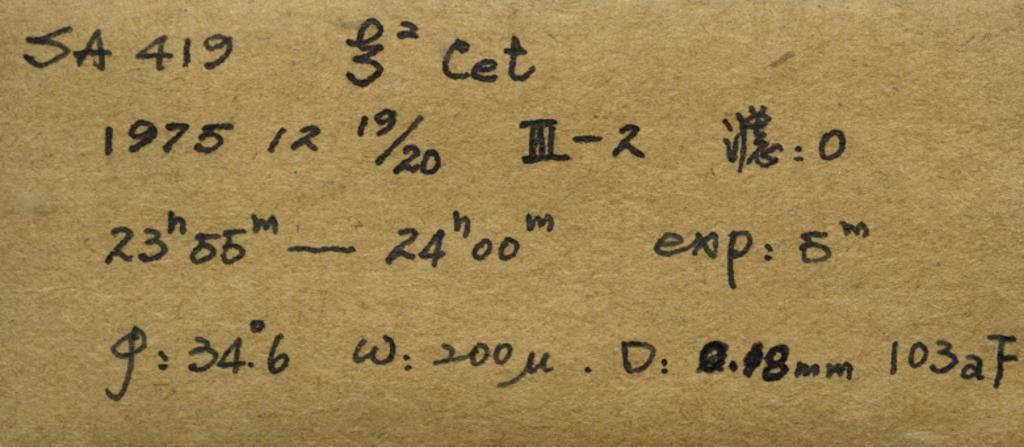 SA 419 ξ² Cet
1975 12 19/20 III-2 濾:0
23ʰ55ᵐ — 24ʰ00ᵐ exp: 5ᵐ
φ: 34°.6 ω: 200μ. D: 0.18mm 103aF